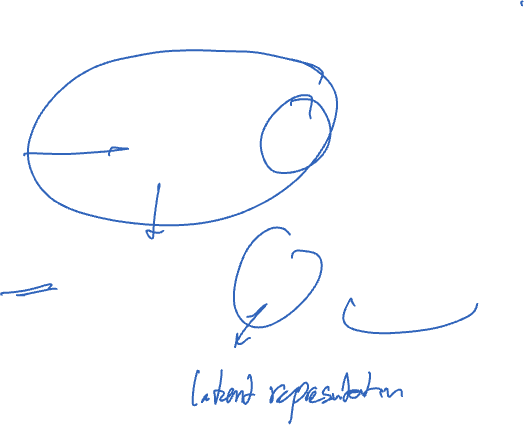 latent representation